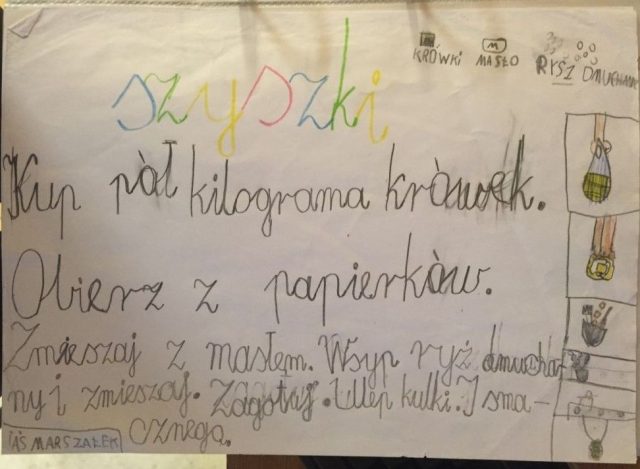 szyszki
KRÓWKI MASŁO RYSZ DMUCHANY
Kup pòł kilograma kròwek.
Obierz z papierkòw.
Zmieszaj z masłem. Wsyp ryż dmucha-
ny i zmieszaj. Zagotuj. Ulep kulki. I sma-
cznego.
JAŚ MARSZAŁEK